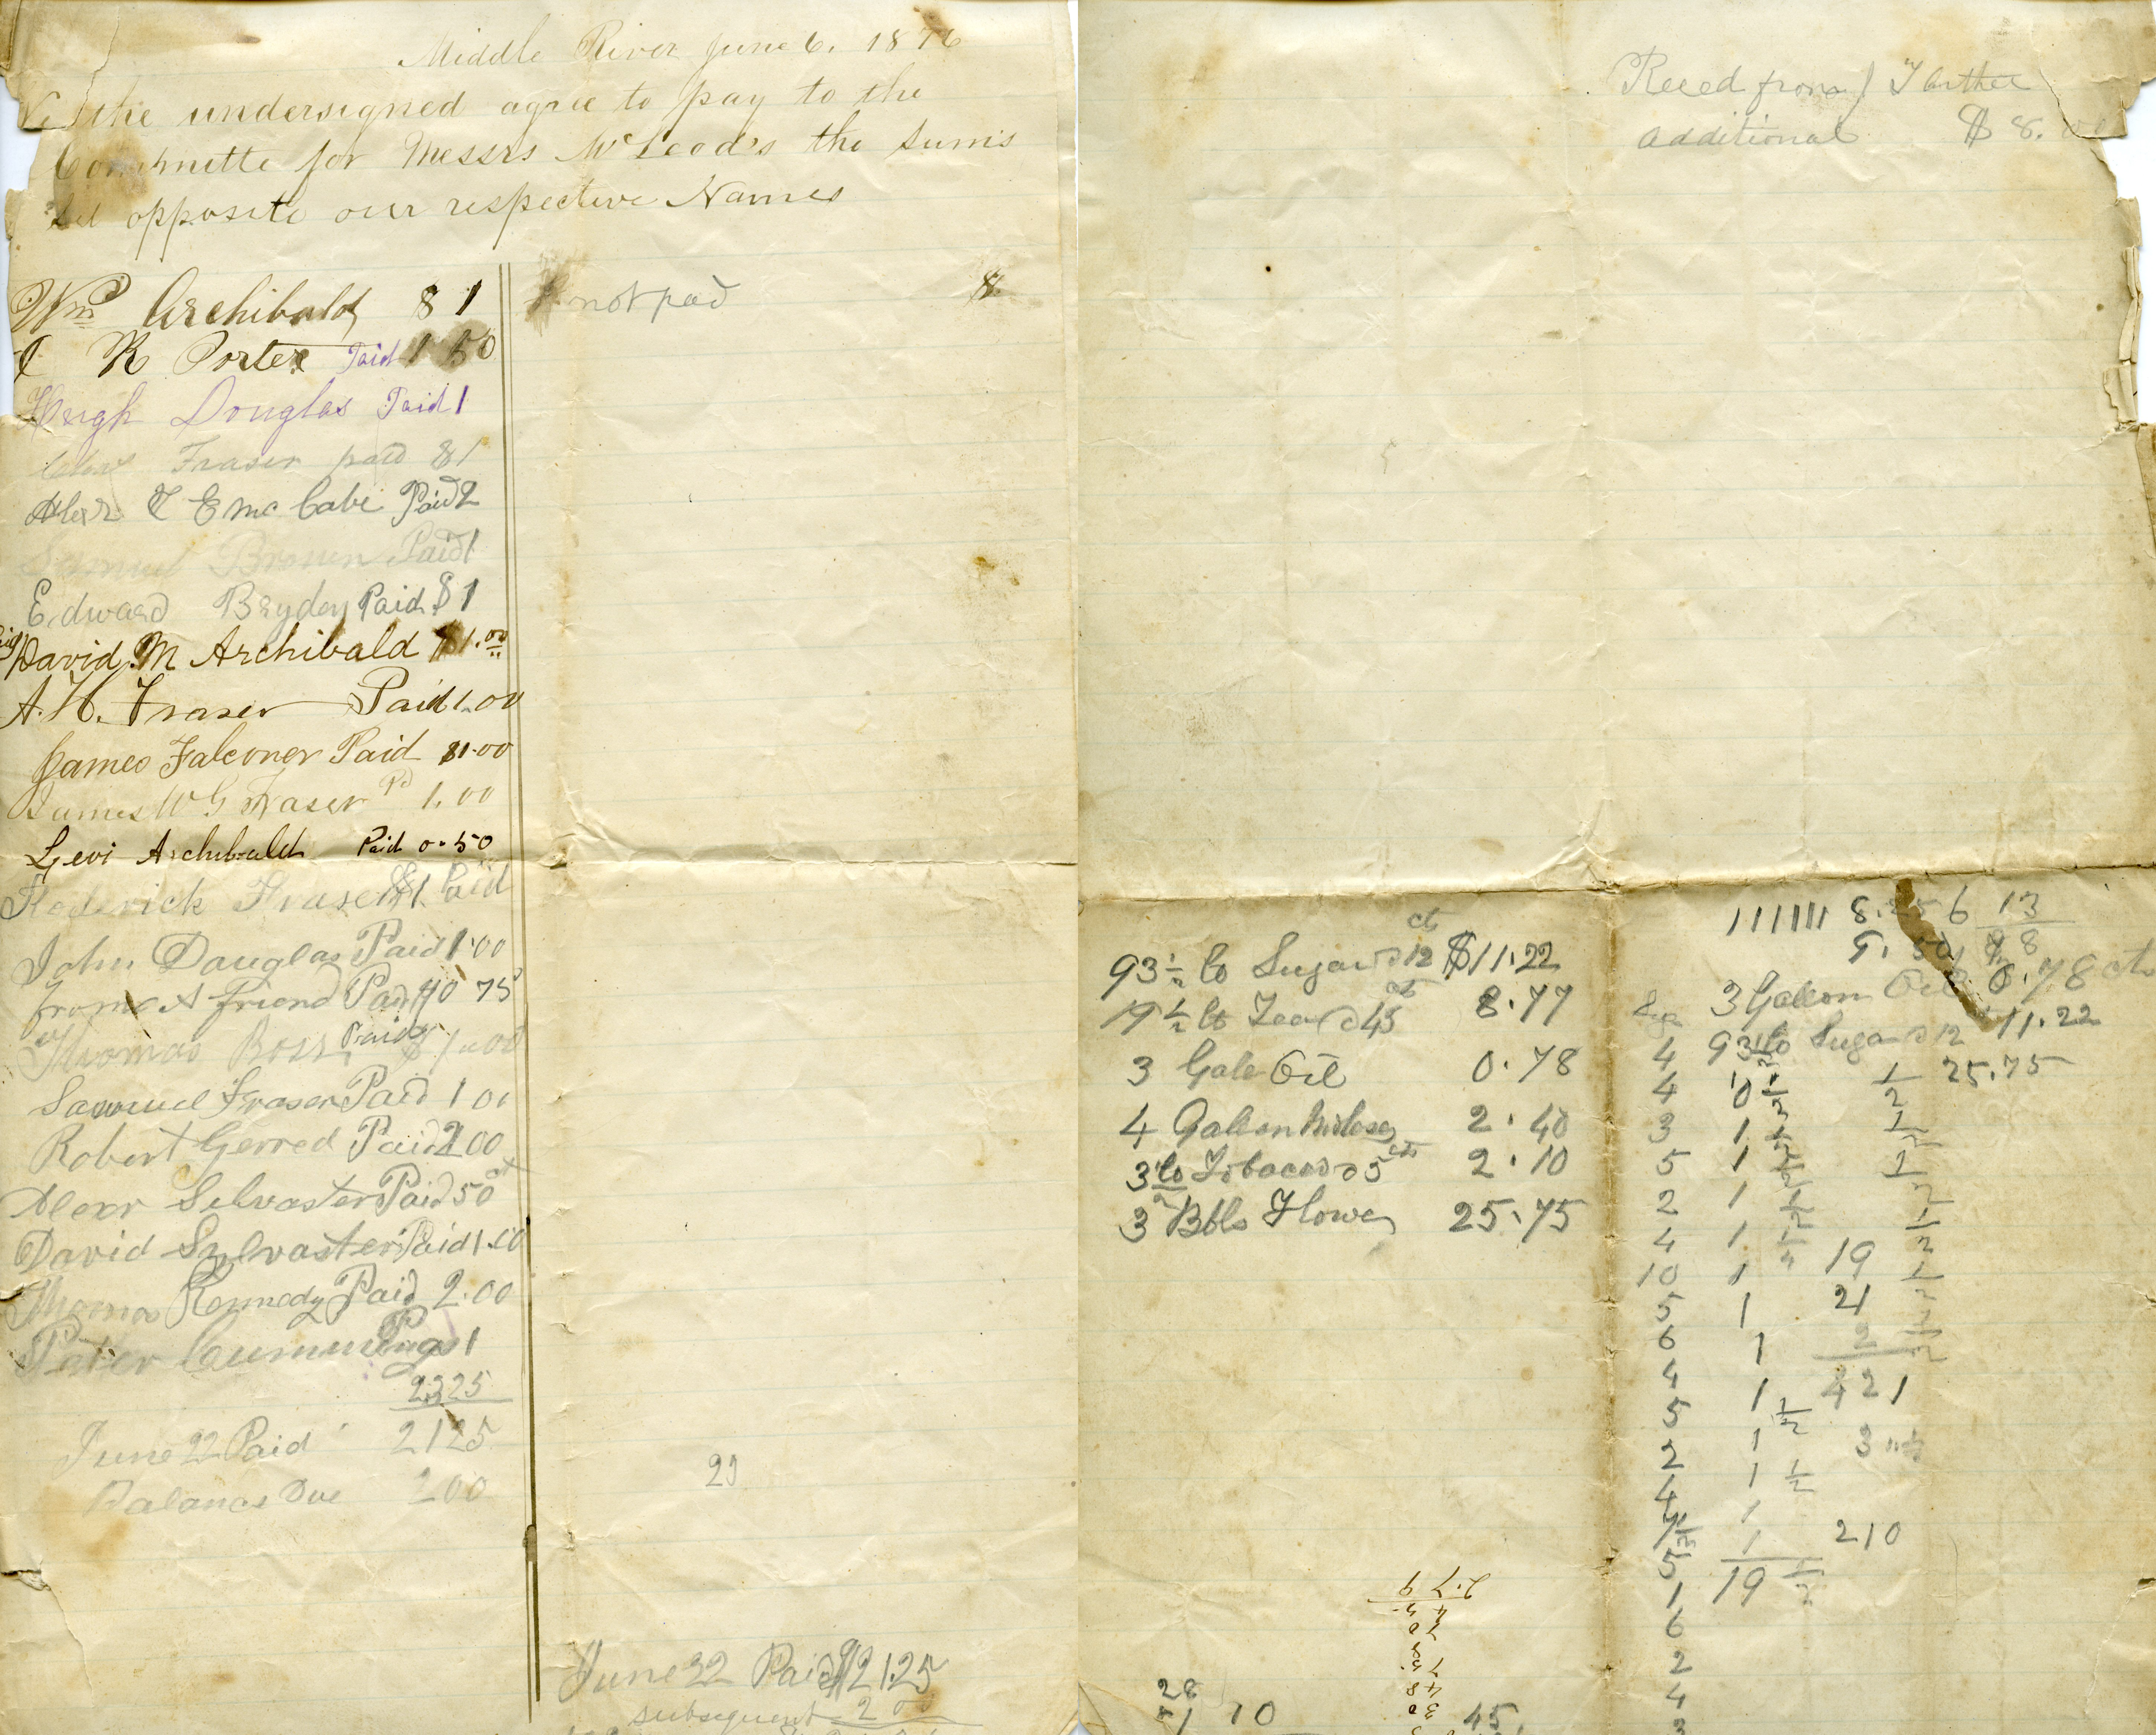 Middle River June 6. 1876
We the undersigned agree to pay to the
Committe for Messrs McLeod's the sums
Set opposite our respective Names
Wm Archibald $1 not pad
R Porter Paid 1 50
Hugh Douglas Paid 1
Fraser paid $1
Alexr & E Mc Cabe Paid 2
Samuel Brown Paid 1
Edward Bryden Paid $1
David M Archibald $1.00
A. H. Fraser Paid 1.00
James Falconer Paid $1.00
James W G Fraser Pd 1.00
Levi Archibald Paid 0.50
Roderick Fraser $1 Paid
John Douglas Paid 1.00
from A friend Paid $0 75
Thomas Ross Paid $1.00
Samuel Fraser Paid 1 00
Robert Gerred Paid 2.00
Alexr Selvaster Paid 50 ct
David Sylvaster Paid 1.00
Thomas Kennedy Paid 2.00
Peter Cummings 1
2325
June 22 Paid 2125
Balance Due 200
June 22 Paid $21.25
subsequent 2 00
Received from J F
additional $ 8.
93 1/2 lb Sugar @ 12 cts $11.22
19 1/2 lb Tea @ 45 cts 8.77
3 Gals Oil 0.78
4 Gallon Molases 2.40
3 1/2 lb Tobacco 2.10
3 Bbls Flower 25.75
13
3 Gallon Oil 0.78 cts
93 1/2 lb Sugar @ 12 11.22
25.75
4
4
3 1
5 1
2 1
4 1 19
10 1 21
5 1 2
6 1
4 1 421
5 1
2 1 1/2
4 1
1 210
5 19 1/2
1
6
2
4
3
28
10 45